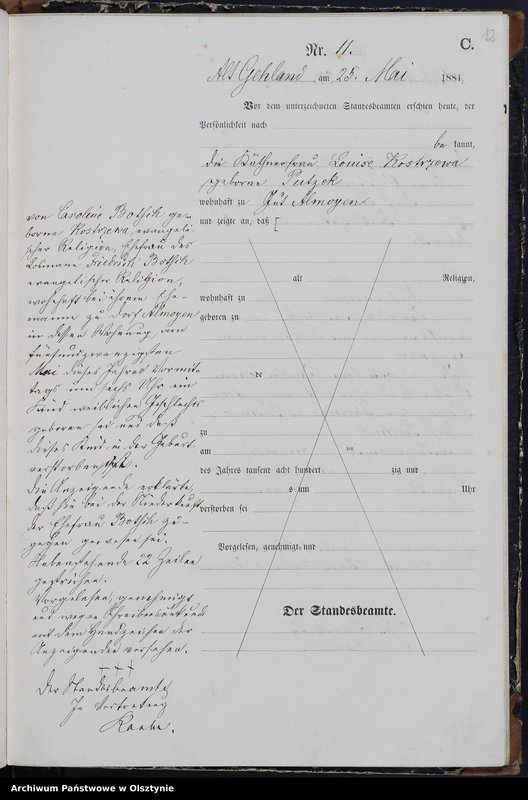 12
C.
Nr. 11.
Alt Gehland, am 25. Mai 1884.
Vor dem unterzeichneten Standesbeamten erschien heute, der
Persönlichkeit nach
be kannt,
die Käthnerfrau Louise Kostrzewa
geborne Putzek
wohnhaft zu Gut Almoyen
und zeigte an, daß [
von Caroline Bothik ge-
borne Kostrzewa, evangeli-
scher Religion, Ehefrau des
Losmann Friedrich Bothik
evangelischer Religion,
wohnhaft bei ihrem Ehe-
manne zu Dorf Almoyen
in dessen Wohnung, am
fünfundzwanzigsten
Mai dieses Jahres Vormit-
tags um sechs Uhr ein
Kind weiblichen Geschlechts
geboren sei und daß
dieses Kind in der Geburt
verstorben sei.
Die Anzeigende erklärte,
daß sie bei der Niederkunft
der Ehefrau Bothik zu-
gegen gewesen sei.
Nebenstehende 22 Zeilen
gestrichen.
Vorgelesen, genehmigt
und wegen Schreibensunkunde
mit dem Handzeichen der
Anzeigenden versehen.
+++
Der Standesbeamte
In Vertretung
alt Religion,
wohnhaft zu
geboren zu
de
zu
am ten
des Jahres tausend acht hundert zig und
s um Uhr
verstorben sei
Vorgelesen, genehmigt und
Der Standesbeamte.
Archiwum Państwowe w Olsztynie